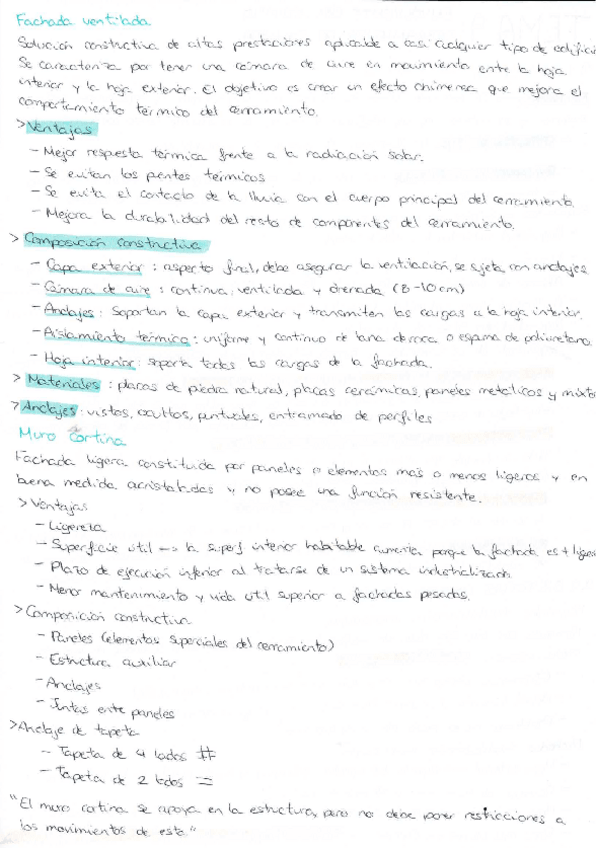 Fachada ventilada
Solución constructiva de altas prestaciones aplicable a casi cualquier tipo de edifici
Se caracteriza por tener una cámara de aire en movimiento entre la hoja
interior y la hoja exterior. El objetivo es crear un efecto chimenea que mejora el
comportamiento térmico del cerramiento.
> Ventajas
- Mejor respuesta térmica frente a la radiación solar.
- Se evitan los puentes térmicos
- Se evita el contacto de la lluvia con el cuerpo principal del cerramiento.
- Mejora la durabilidad del resto de componentes del cerramiento.
> Composición constructiva
- Capa exterior: aspecto final, debe asegurar la ventilación, se sujeta con anclajes
- Cámara de aire: continua, ventilada y drenada (3-10cm)
- Anclajes: Soportan la capa exterior y transmiten las cargas a la hoja interior.
- Aislamiento térmico: uniforme y continuo de lana de roca o espuma de poliuretano.
- Hoja interior: soporta todas las cargas de la fachada.
> Materiales: placas de piedra natural, placas cerámicas, paneles metálicos y mixto
> Anclajes: vistos, ocultos, puntuales, entramado de perfiles
Muro cortina
Fachada ligera constituida por paneles o elementos más o menos ligeros y en
buena medida acristalados y no posee una función resistente.
> Ventajas
- Ligereza
- Superficie útil → la superf interior habitable aumenta porque la fachada es + ligera
- Plazo de ejecución inferior al tratarse de un sistema industrializado.
- Menor mantenimiento y vida útil superior a fachadas pesadas.
> Composición constructiva
- Paneles (elementos superciales del cerramiento)
- Estructura auxiliar
- Anclajes
- Juntas entre paneles
> Anclaje de tapeta
- Tapeta de 4 lados #
- Tapeta de 2 lados =
"El muro cortina se apoya en la estructura, pero no debe poner restricciones a
los movimientos de esta"